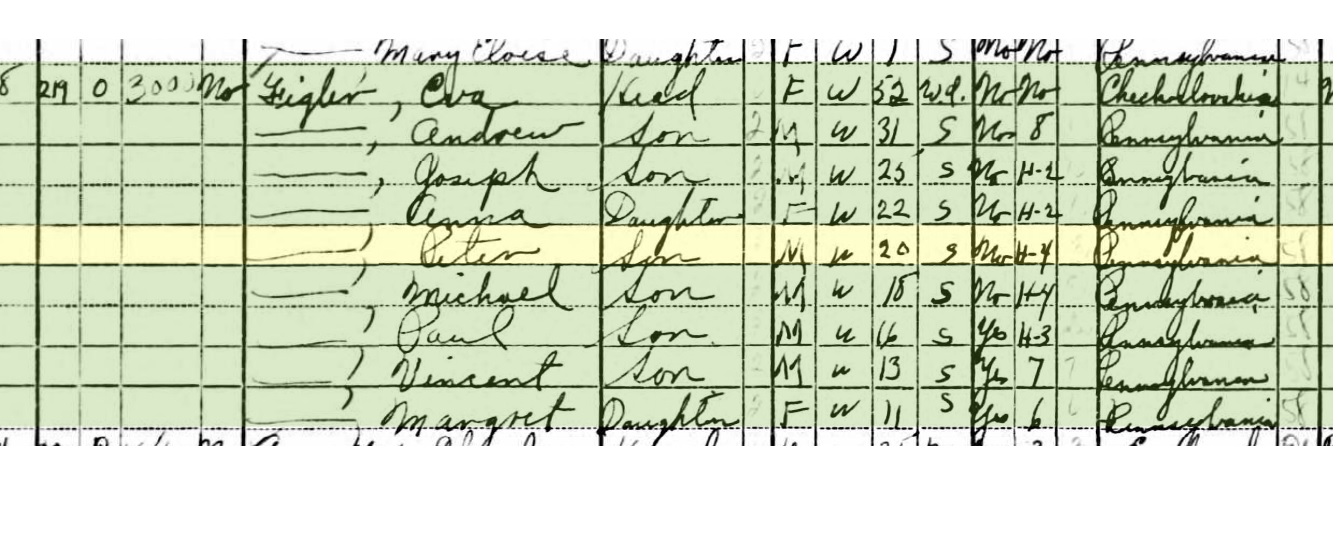 Mary Eloise Daughter F W 1 S No No Pennsylvania
219 0 3000 No Figler, Eva Head F W 52 Wd. No No Checkoslovakia
——, Andrew Son M W 31 S No 8 Pennsylvania
——, Joseph Son M W 25 S No H-2 Pennsylvania
—— Anna Daughter F W 22 S No H-2 Pennsylvania
——, Peter Son M W 20 S No H-4 Pennsylvania
——, Michael Son M W 18 S No H-4 Pennsylvania
—— Paul Son M W 16 S Yes H-3 Pennsylvania
——, Vincent Son M W 13 S Yes 7 Pennsylvania
——, Margret Daughter F W 11 S Yes 6 Pennsylvania